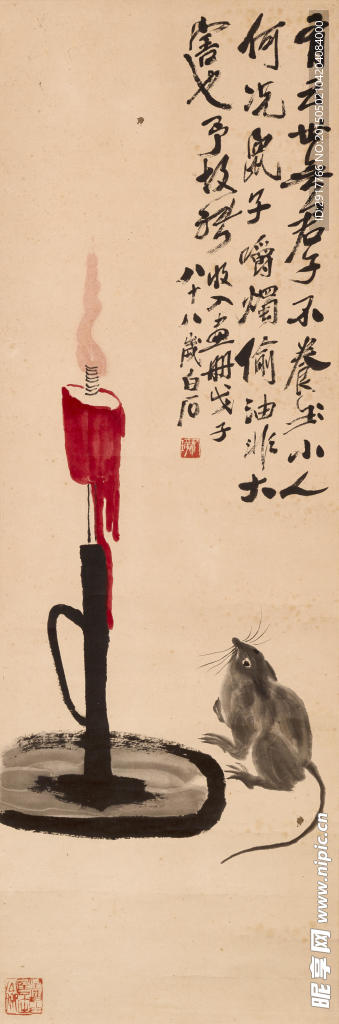 云世無君子不養小人
何況鼠子嚼燭偷油非大
害也予故將
收入畫冊戊子
八十八歲白石
ID:2917766 NO:20150502104204084000
昵享网 www.nipic.cn